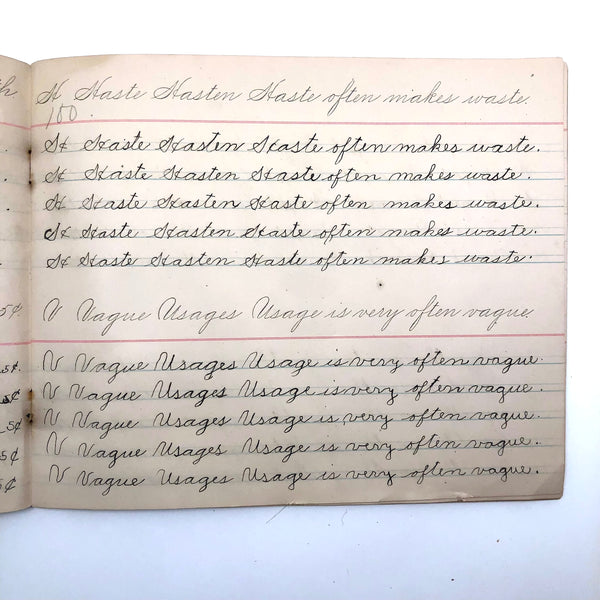 th
H Haste Hasten Haste often makes waste.
100
H Haste Hasten Haste often makes waste.
H Haste Hasten Haste often makes waste.
H Haste Hasten Haste often makes waste.
H Haste Hasten Haste often makes waste.
H Haste Hasten Haste often makes waste.
5¢ V Vague Usages Usage is very often vague
5¢. V Vague Usages Usage is very often vague.
5¢ V Vague Usages Usage is very often vague.
5¢ V Vague Usages Usage is very often vague.
5¢ V Vague Usages Usage is very often vague.
5¢ V Vague Usages Usage is very often vague.